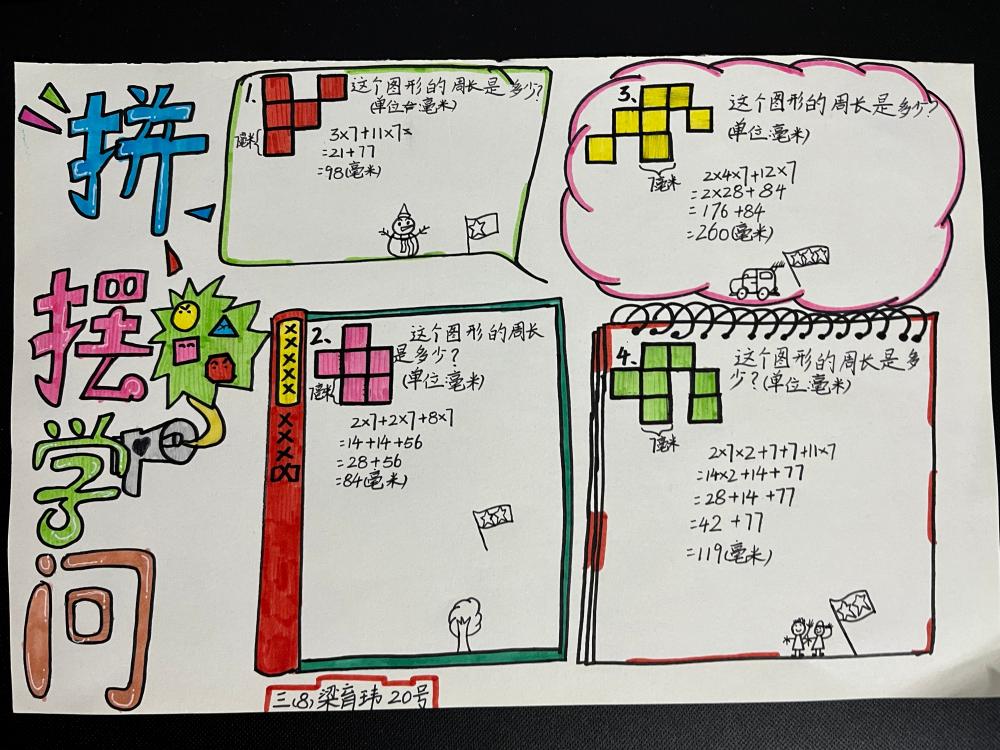 拼
摆
学
问
1.
这个图形的周长是多少?
(单位:毫米)
7毫米
3×7+11×7=
=21+77
=98(毫米)
3、
这个图形的周长是多少?
(单位:毫米)
7毫米
2×4×7+12×7
=2×28+84
=176+84
=260(毫米)
2、
这个图形的周长
是多少?
(单位:毫米)
7毫米
2×7+2×7+8×7
=14+14+56
=28+56
=84(毫米)
4、
这个图形的周长是多
少?(单位:毫米)
7毫米
2×7×2+7+7+11×7
=14×2+14+77
=28+14+77
=42+77
=119(毫米)
三(8)梁育玮 20号